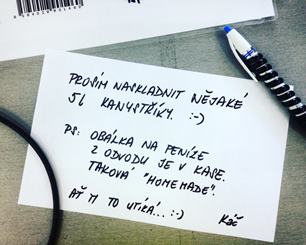 PROSÍM NASKLADNIT NĚJAKÉ
5L KANYSTŘÍKY. :-)
PS: OBÁLKA NA PENÍZE
Z ODVODU JE V KASE.
TAKOVÁ "HOMEMADE".
AŤ M TO UTÍKÁ...:-)